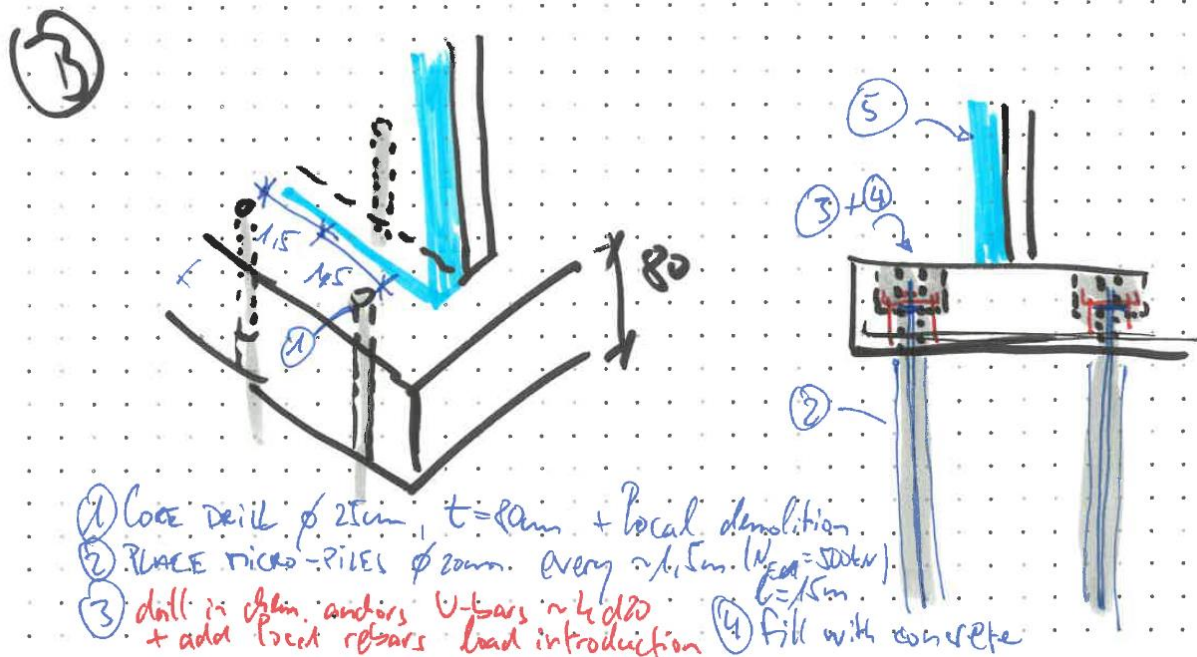 B
1,5
1,5
80
1
5
3 + 4
2
1 CORE DRILL ϕ 25cm, t=80cm + local demolition
2 PLACE MICRO-PILES ϕ 20cm every ~1,5m (N =500kN)
l=15m
3 drill in chem. anchors U-bars ~4 d20
+ add local rebars load introduction
4 fill with concrete